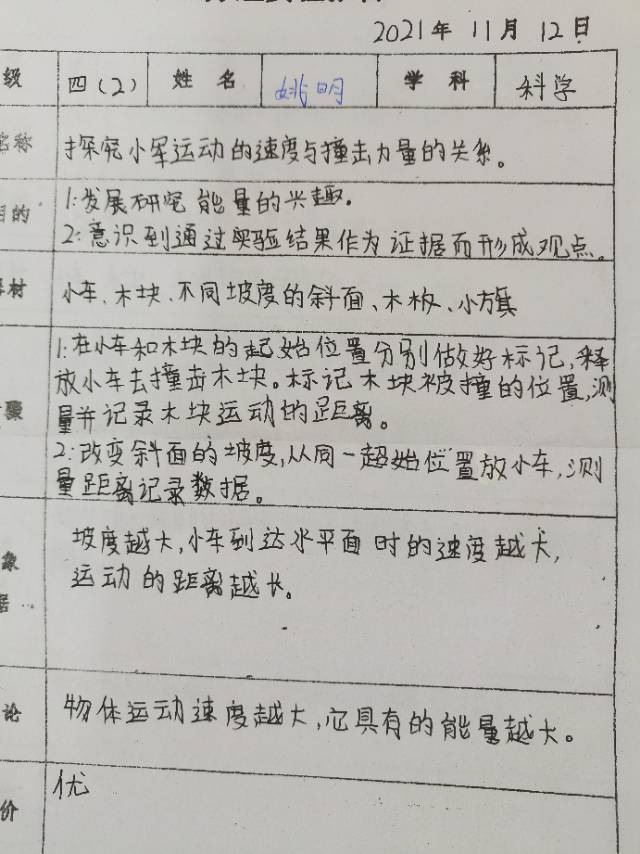 2021年 11月 12日
级 四(2) 姓名 姚明 学科 科学
名称 探究小车运动的速度与撞击力量的关系。
目的 1:发展研究能量的兴趣.
2:意识到通过实验结果作为证据而形成观点。
器材 小车、木块、不同坡度的斜面、木板、小方旗
1:在小车和木块的起始位置分别做好标记,释
放小车去撞击木块。标记木块被撞的位置,测
骤 量并记录木块运动的距离。
2:改变斜面的坡度,从同一起始位置放小车,测
量距离记录数据。
坡度越大,小车到达水平面时的速度越大,
象 运动的距离越长。
据
论 物体运动速度越大,它具有的能量越大。
价 优